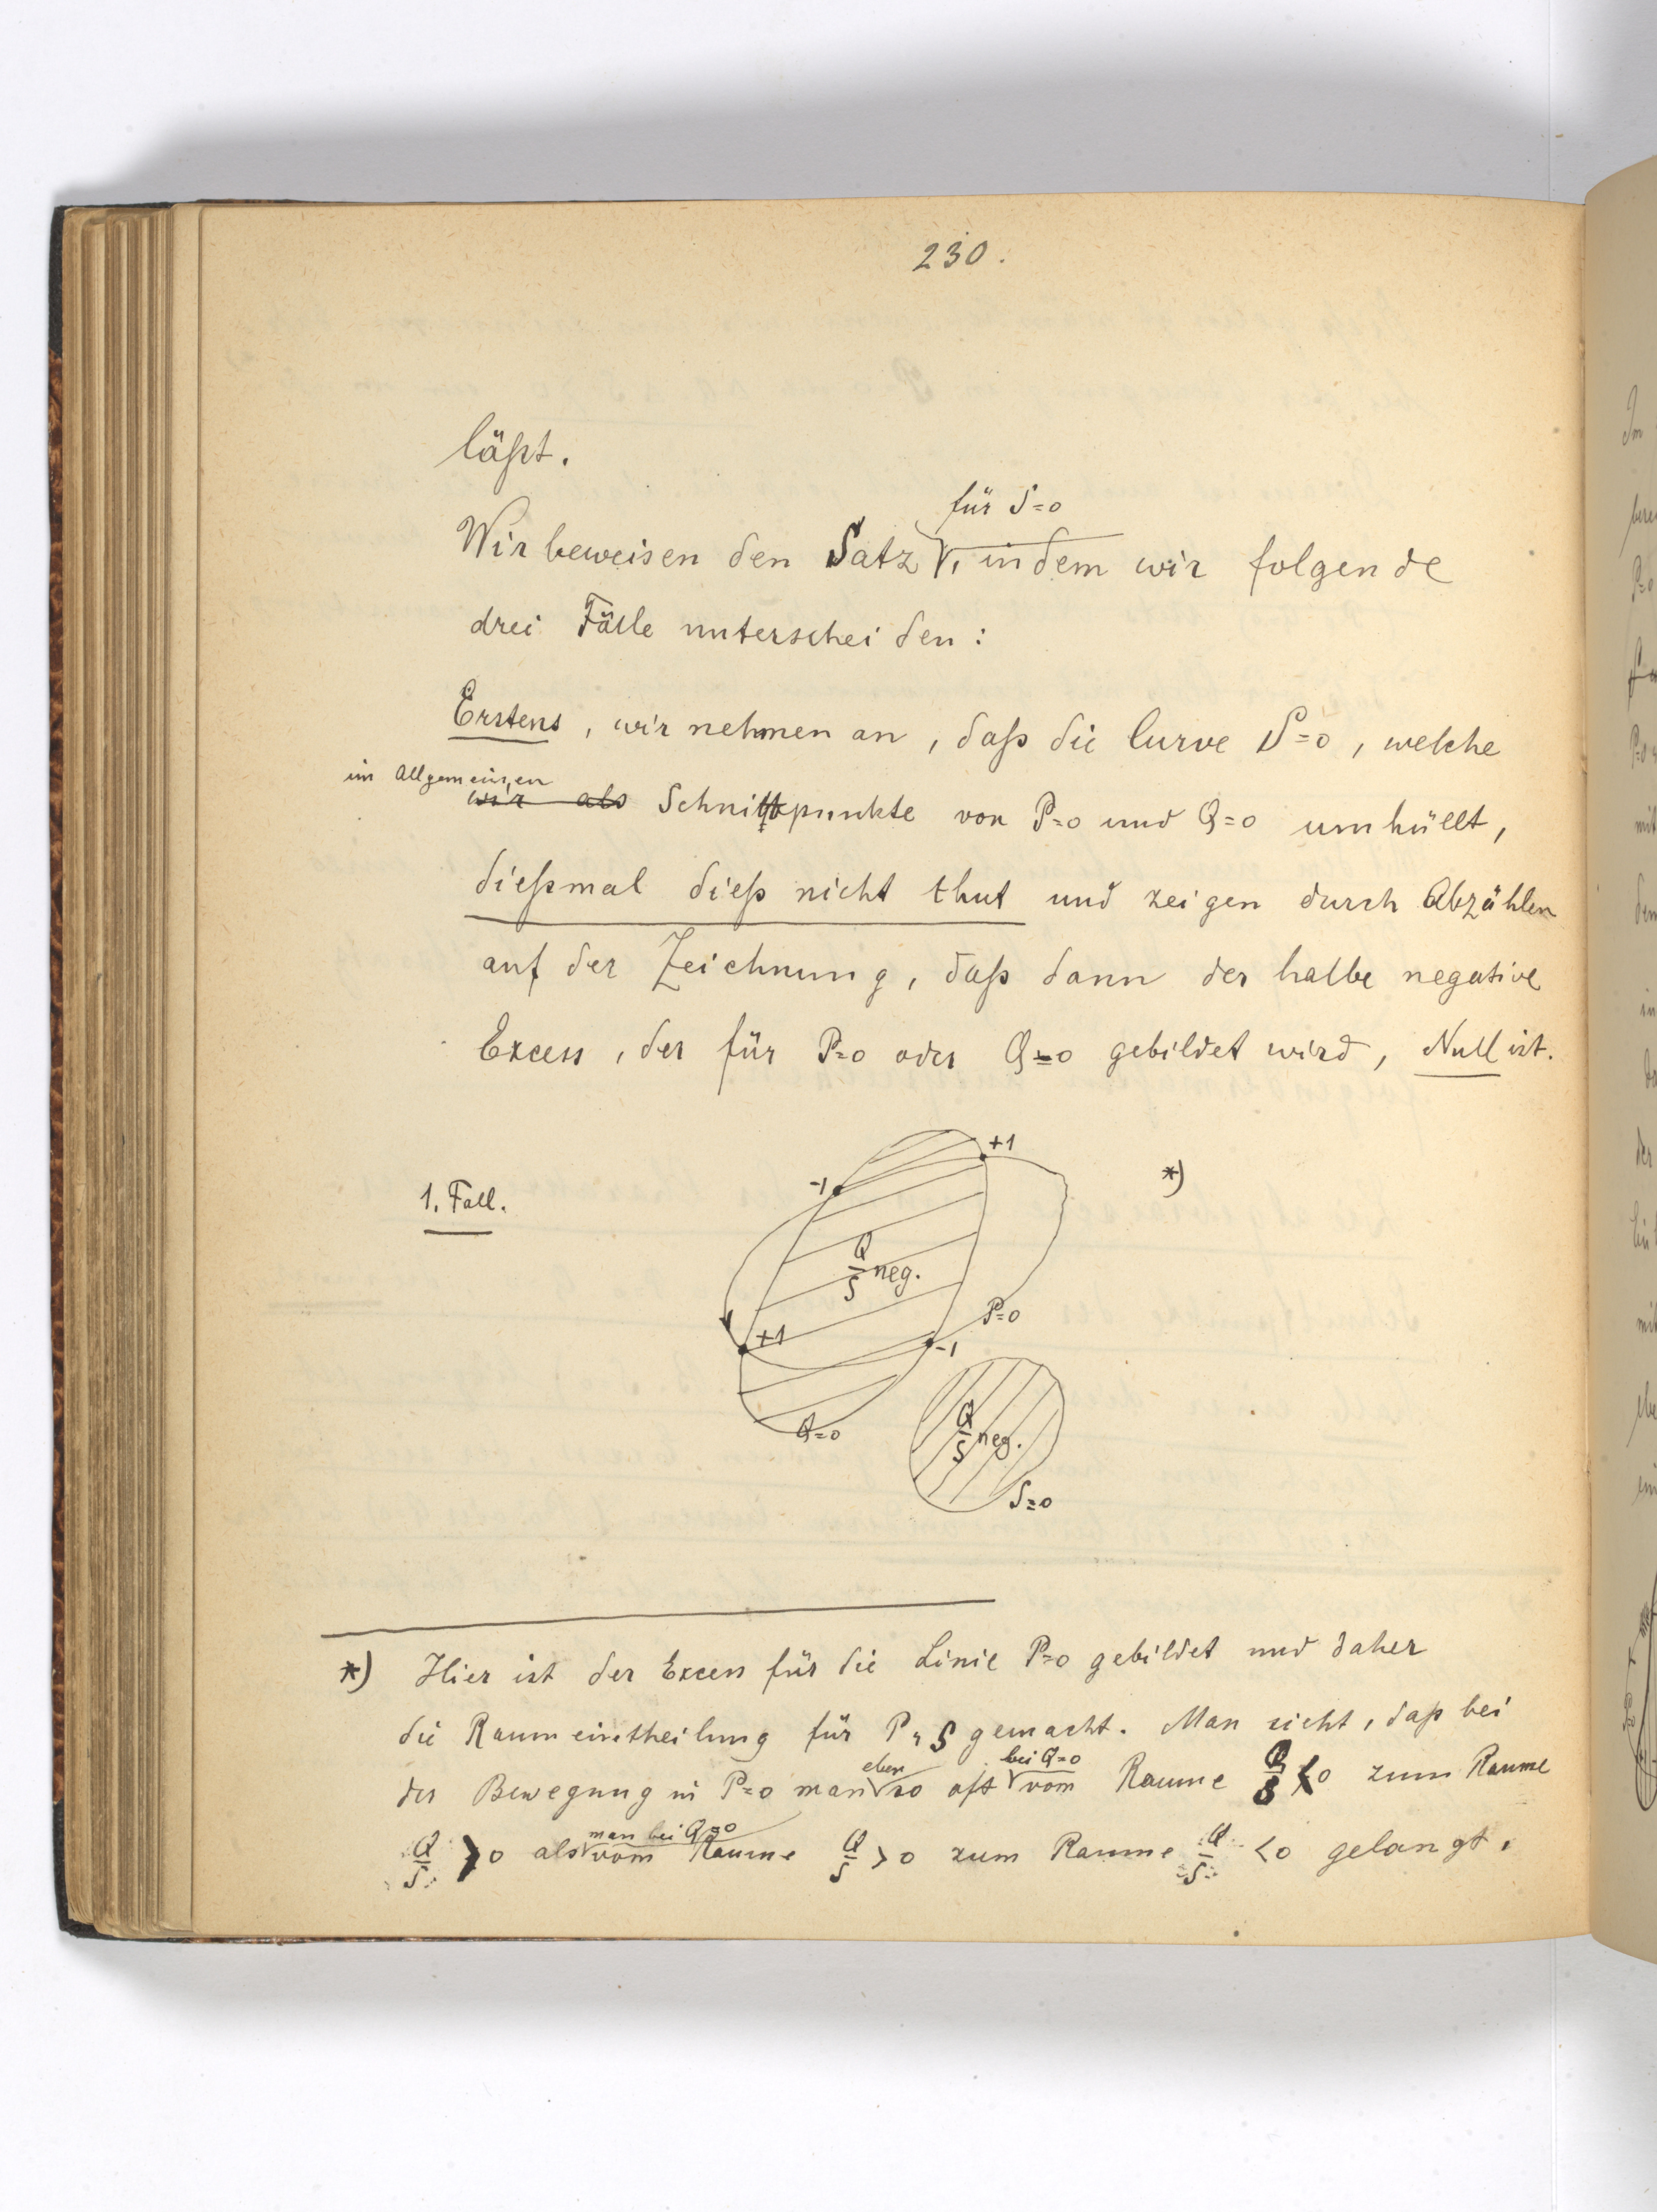 230.
läßt.
für S=0
Wir beweisen den Satz, indem wir folgende
drei Fälle unterscheiden:
Erstens, wir nehmen an, daß die Curve S=0, welche
im Allgemeinen
wir als Schnittpunkte von P=0 und Q=0 umhüllt,
dießmal dieß nicht thut und zeigen durch Abzählen
auf der Zeichnung, daß dann der halbe negative
Excess, der für P=0 oder Q=0 gebildet wird, Null ist.
1. Fall.
+1
-1
*)
Q/S neg.
P=0
+1
-1
Q=0
Q/S neg.
S=0
*) Hier ist der Excess für die Linie P=0 gebildet und daher
die Raumeintheilung für P, S gemacht. Man sieht, daß bei
eben bei Q=0
der Bewegung in P=0 man so oft vom Raume Q/S <0 zum Raume
man bei Q=0
Q/S >0 als vom Raume Q/S >0 zum Raume Q/S <0 gelangt.